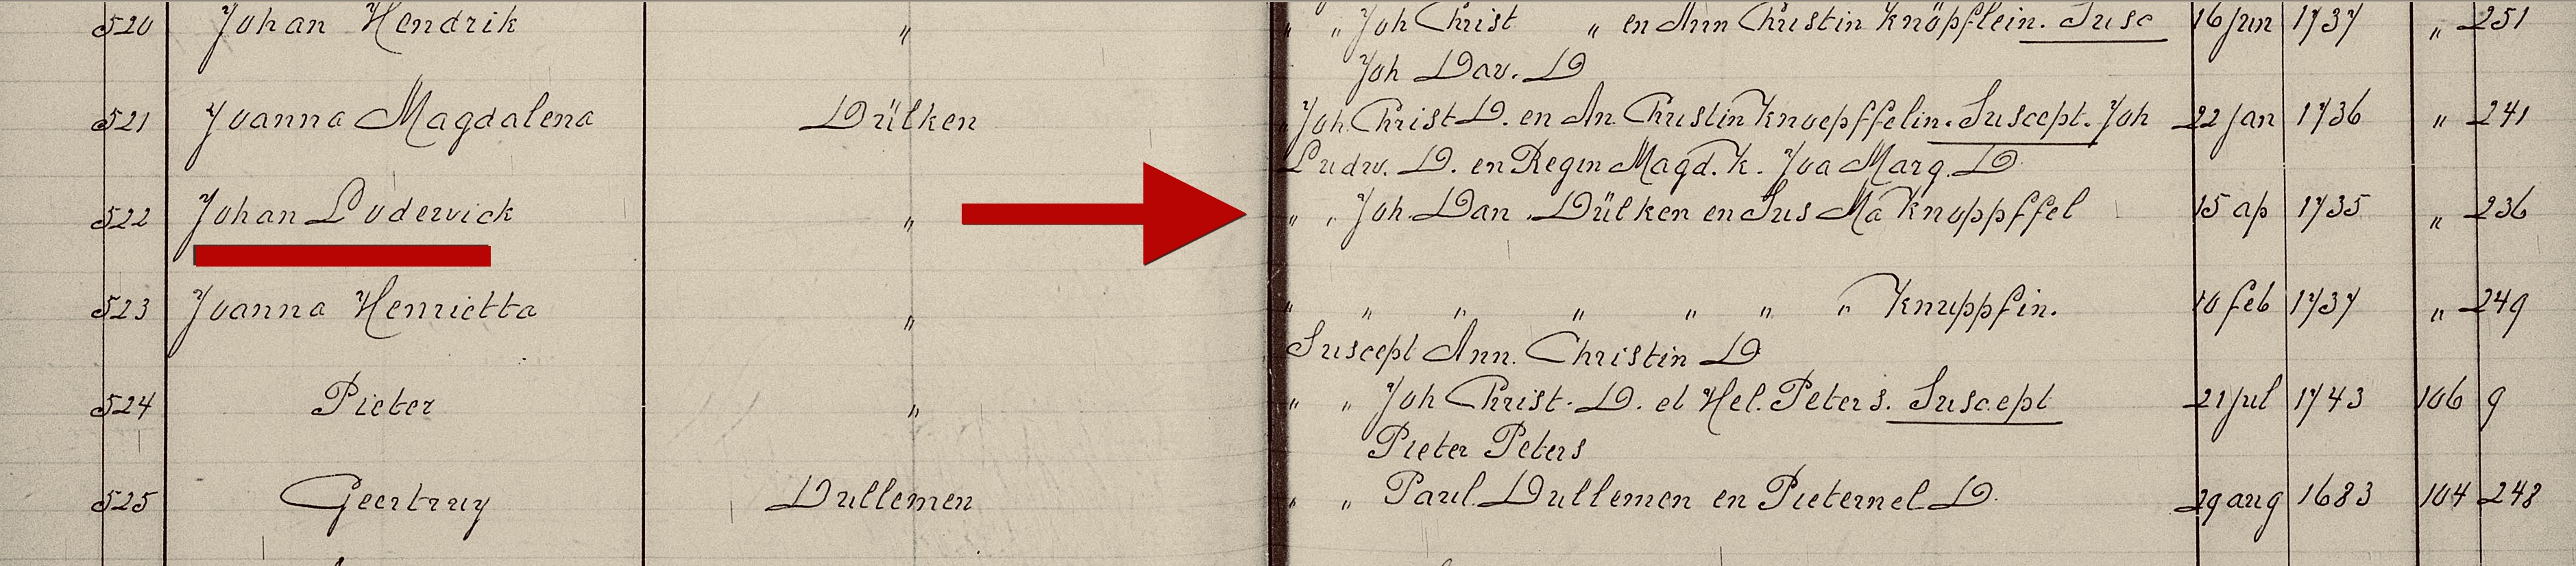 520 Johan Hendrik " " " Joh Christ " en Ann Christin Knöpflein. Susc 16 jun 1737 " 251
Joh Dav. D
521 Joanna Magdalena Dülken " Joh. Christ D. en An. Christin Knoepffelin. Suscept. Joh 22 jan 1736 " 241
Ludw. D. en Regin Magd. K. Joa Marg. D
522 Johan Lodewick " " " Joh. Dan. Dülken en Sus Ma Knoppffel 15 ap 1735 " 236
523 Joanna Henrietta " " " " " " " " Knuppfin. 10 feb 1737 " 249
Suscept Ann. Christin D
524 Pieter " " " Joh Christ. D. et Hel. Peters. Suscept 21 jul 1743 106 9
Pieter Peters
525 Geertruy Dullemen " " Paul Dullemen en Pieternel D. 29 aug 1683 104 248